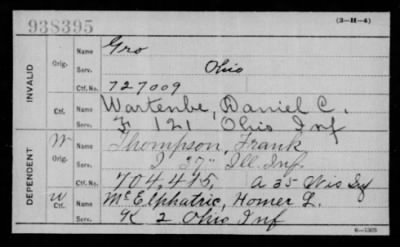 938395
(3-H-4)
INVALID
Orig.
Name Gro
Serv. Ohio
Ctf. No. 727009
Ctf.
Name Wartenbe, Daniel C.
Serv. F 121 Ohio Inf
DEPENDENT
W Orig.
Name Thompson, Frank
Serv. I 37" Ill. Inf.
Ctf. No. 704.415. A 35 Wis Inf
W Ctf.
Name McElphatric, Homer L.
Serv. K 2 Ohio Inf
6-1325